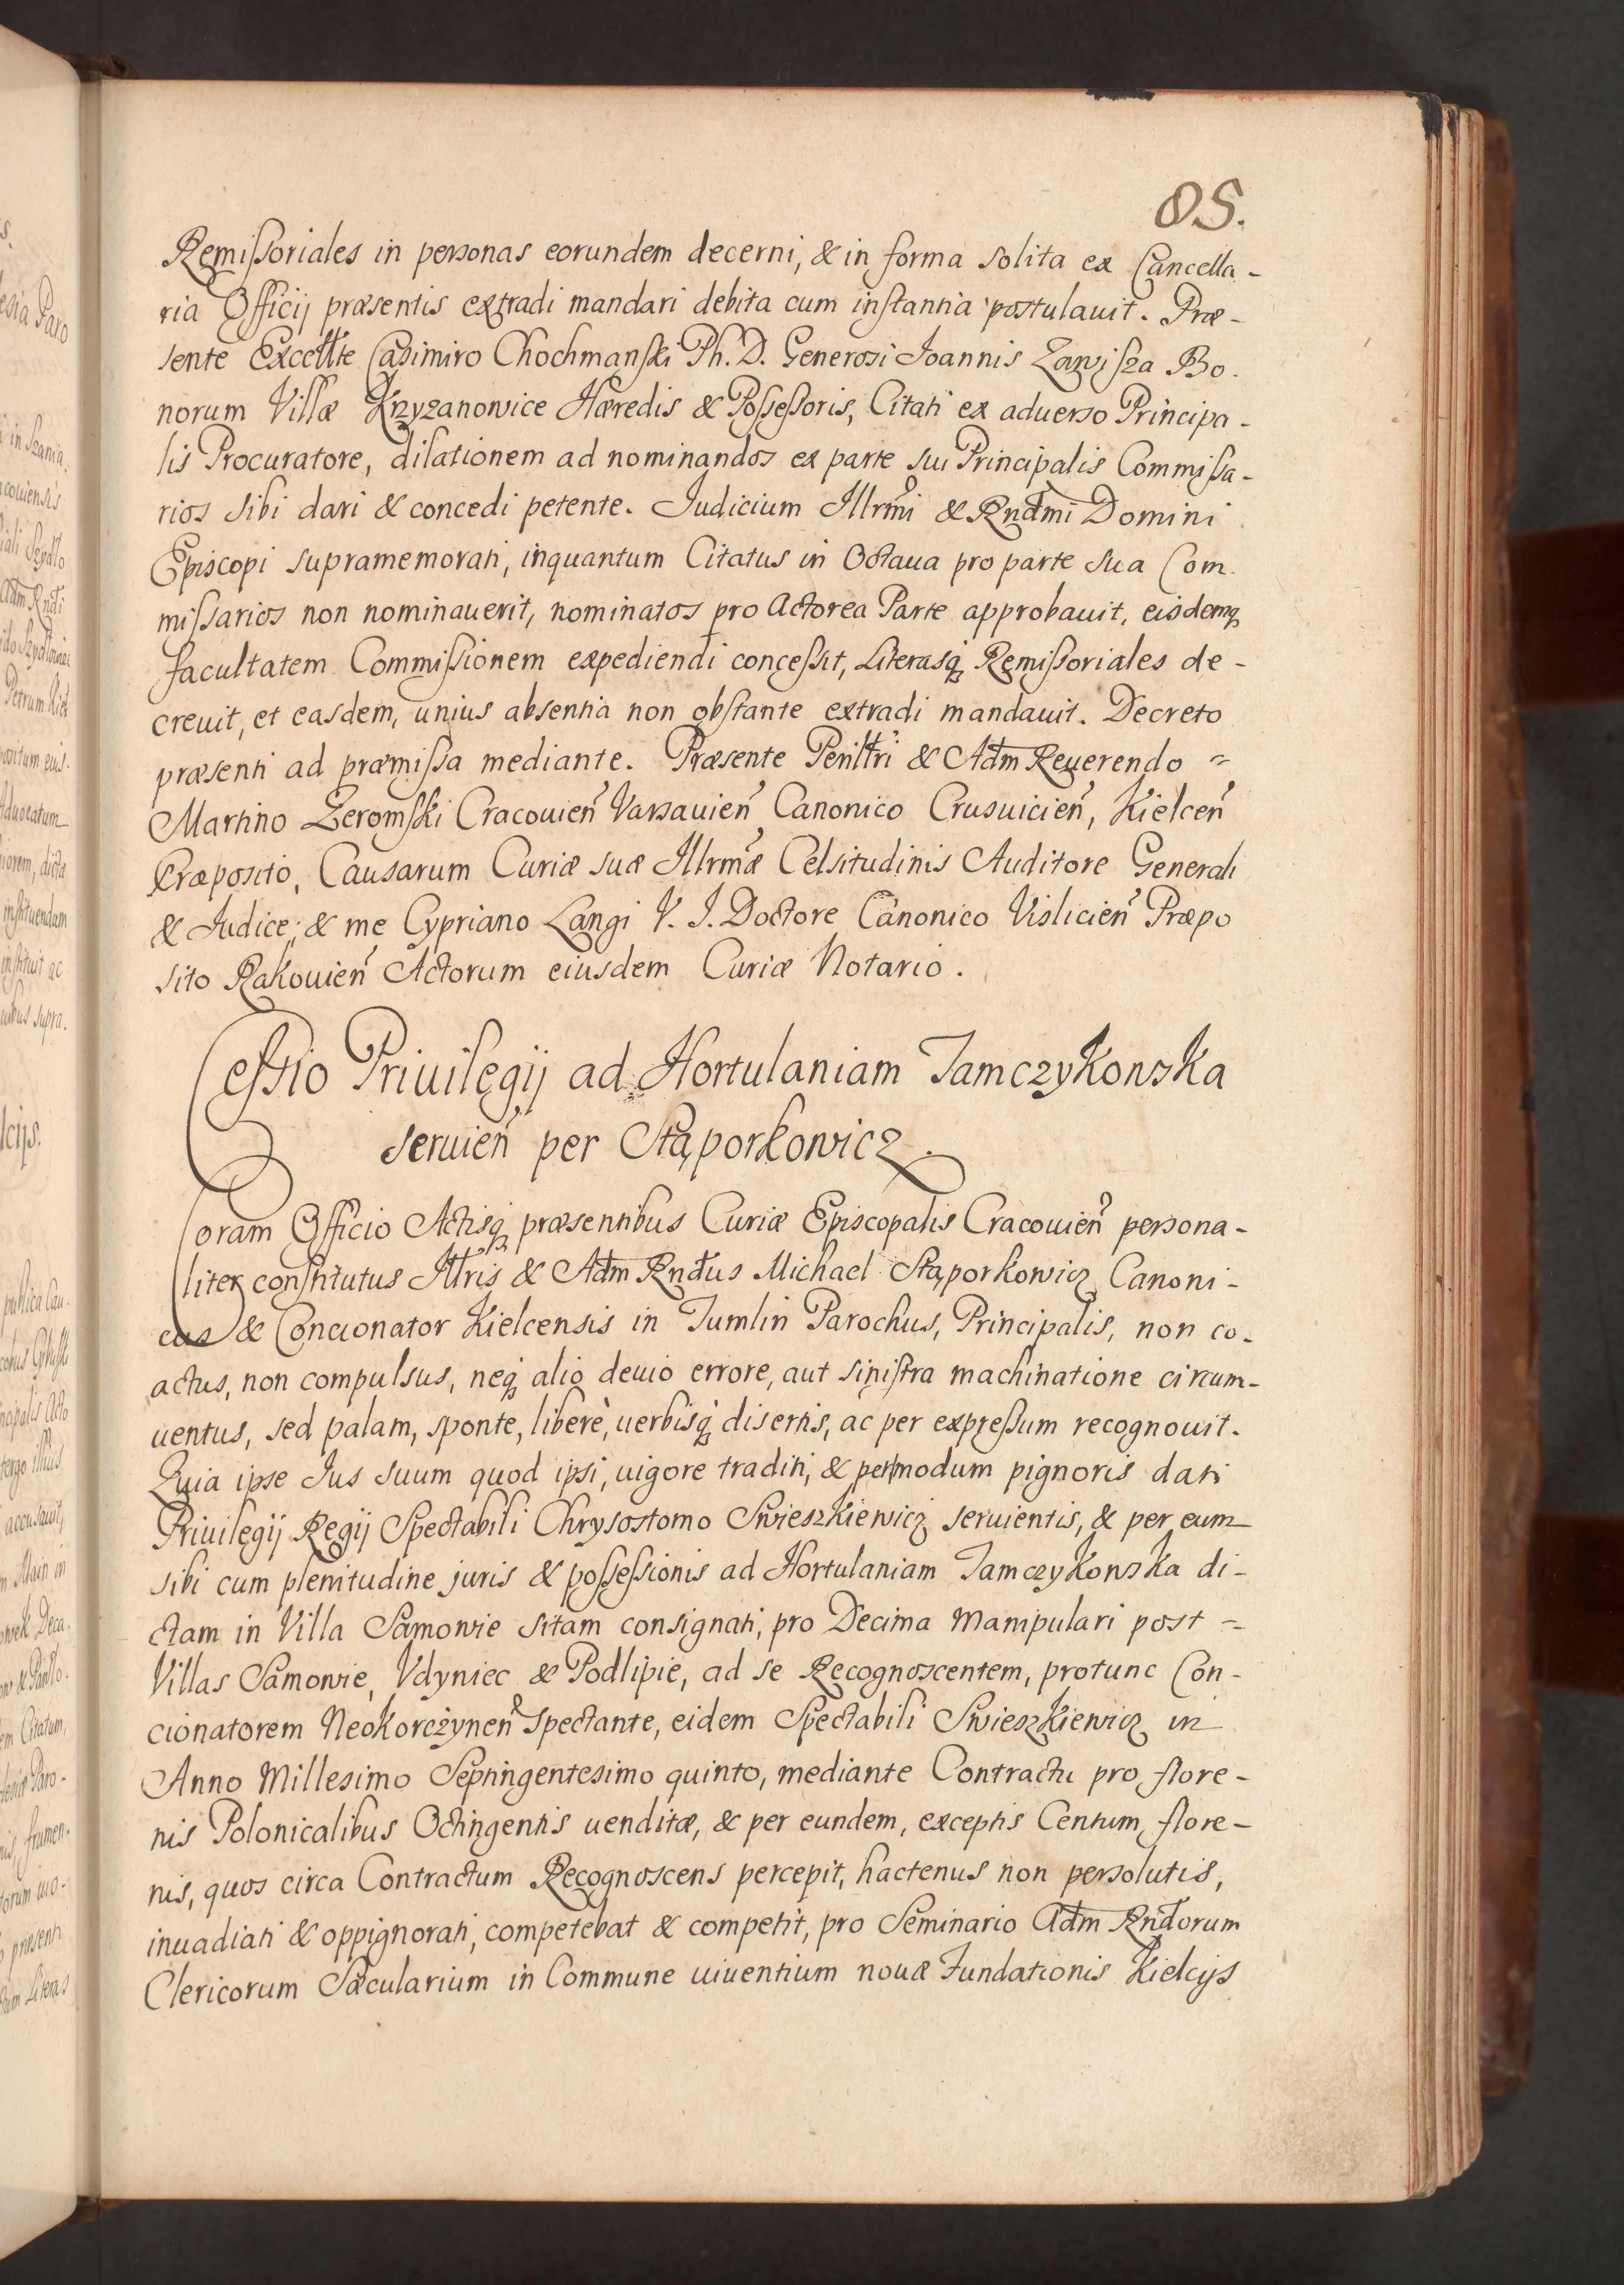 85.
Remissoriales in personas eorundem decerni, & in forma solita ex Cancella-
ria Officij præsentis extradi mandari debita cum instantia postulauit. Præ-
sente Excellte Casimiro Chochmanski Ph. D. Generosi Joannis Zawisza Bo-
norum Villæ Krzyzanowice Hæredis & Possessoris, Citati ex aduerso Principa-
lis Procuratore, dilationem ad nominandos ex parte sui Principalis Commissa-
rios sibi dari & concedi petente. Judicium Illrmi & Rndmi Domini
Episcopi supramemorati, inquantum Citatus in Octaua pro parte sua Com-
missarios non nominauerit, nominatos pro Actorea Parte approbauit, eisdemq
facultatem Commissionem expediendi concessit, Literasq Remissoriales de-
creuit, et easdem, unius absentia non obstante extradi mandauit. Decreto
præsenti ad præmissa mediante. Præsente Perilltri & Adm Reuerendo =
Martino Zeromski Cracouien Varsauien Canonico Crusuicien, Kielcen
Præposito, Causarum Curiæ suæ Illrmæ Celsitudinis Auditore Generali
& Judice; & me Cypriano Langi V. J. Doctore Canonico Vislicien Præpo
sito Rakouien Actorum eiusdem Curiæ Notario.
Cessio Priuilegij ad Hortulaniam Jamczykowska
seruien per Stąporkowicz.
Coram Officio Actisq præsentibus Curiæ Episcopalis Cracouien persona-
liter constitutus Illtris & Adm Rndus Michael Stąporkowicz Canoni-
cus & Concionator Kielcensis in Tumlin Parochus, Principalis, non co-
actus, non compulsus, neq alio deuio errore, aut sinistra machinatione circum-
uentus, sed palam, sponte, liberè, uerbisq disertis, ac per expressum recognouit.
Quia ipse Jus suum quod ipsi, uigore traditi, & per modum pignoris dati
Priuilegij Regij Spectabili Chrysostomo Swieszkiewicz seruientis, & per eum
sibi cum plenitudine juris & possessionis ad Hortulaniam Jamczykowska di-
ctam in Villa Samowie sitam consignati, pro Decima Manipulari post =
Villas Samowie, Vdyniec & Podlipie, ad se Recognoscentem, protunc Con-
cionatorem Neokorczynen spectante, eidem Spectabili Swieszkiewicz in
Anno Millesimo Septingentesimo quinto, mediante Contractu pro flore-
nis Polonicalibus Octingentis uenditæ, & per eundem, exceptis Centum flore-
nis, quos circa Contractum Recognoscens percepit, hactenus non persolutis,
inuadiati & oppignorati, competebat & competit, pro Seminario Adm Rndorum
Clericorum Sæcularium in Commune uiuentium nouæ Fundationis Kielcijs